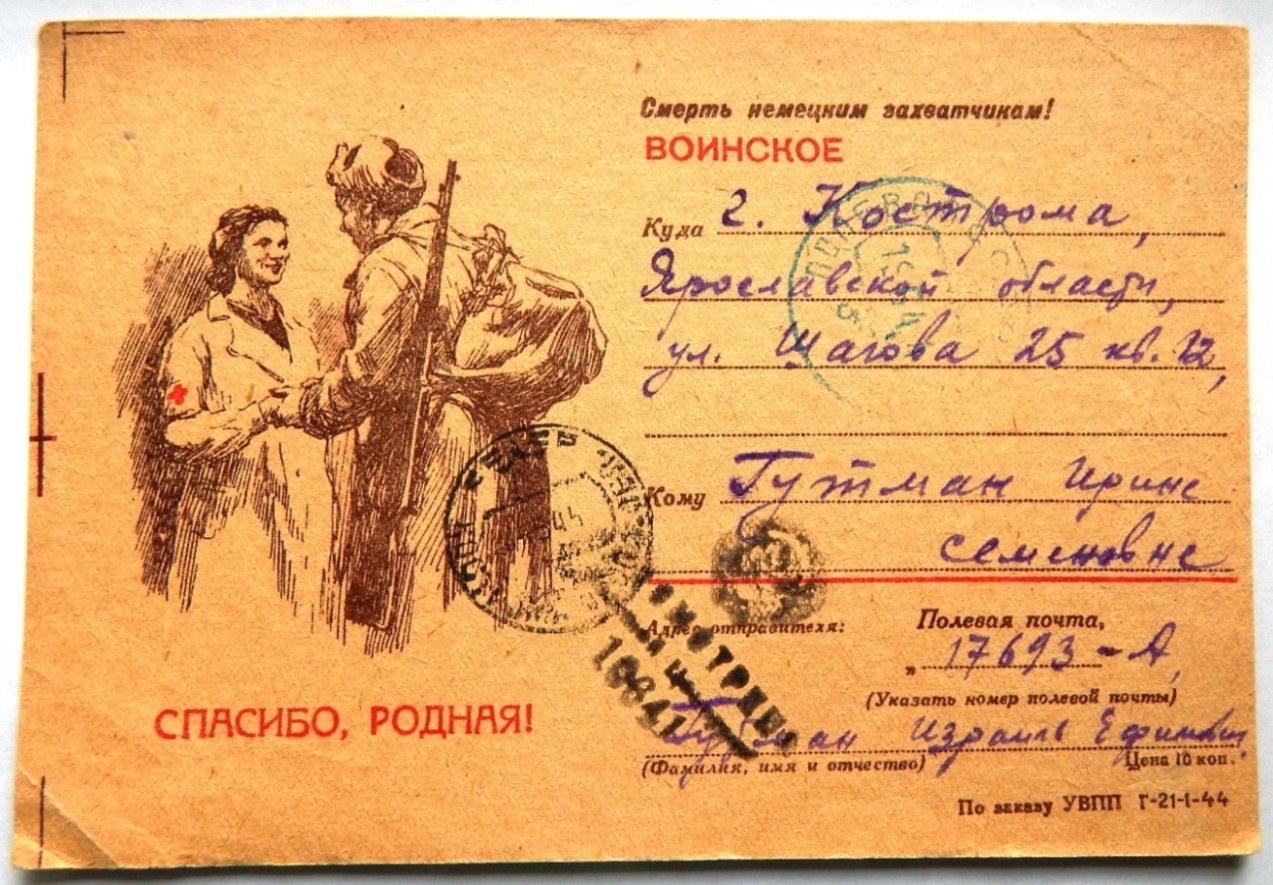 Смерть немецким захватчикам!
ВОИНСКОЕ
Куда г. Кострома,
Ярославской области,
ул. Шагова 25 кв. 12,
Кому Гутман Ирине
Семеновне
Адрес отправителя:
Полевая почта,
17693-А
(Указать номер полевой почты)
Гутман Израиль Ефимович
(Фамилия, имя и отчество)
Цена 10 коп.
По заказу УВПП Г-21-1-44
СПАСИБО, РОДНАЯ!
10641